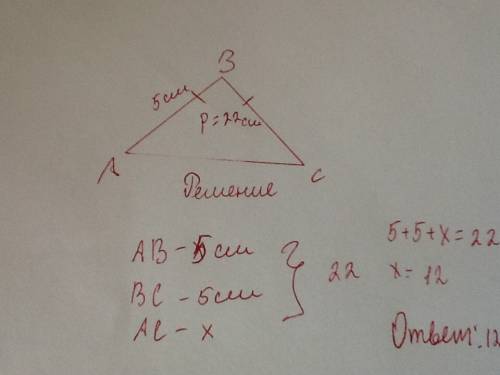 B
5см
P=22см
A
C
Решение
AB - 5см
BC - 5см
AC - x
22
5+5+x=22
x=12
Ответ: 12